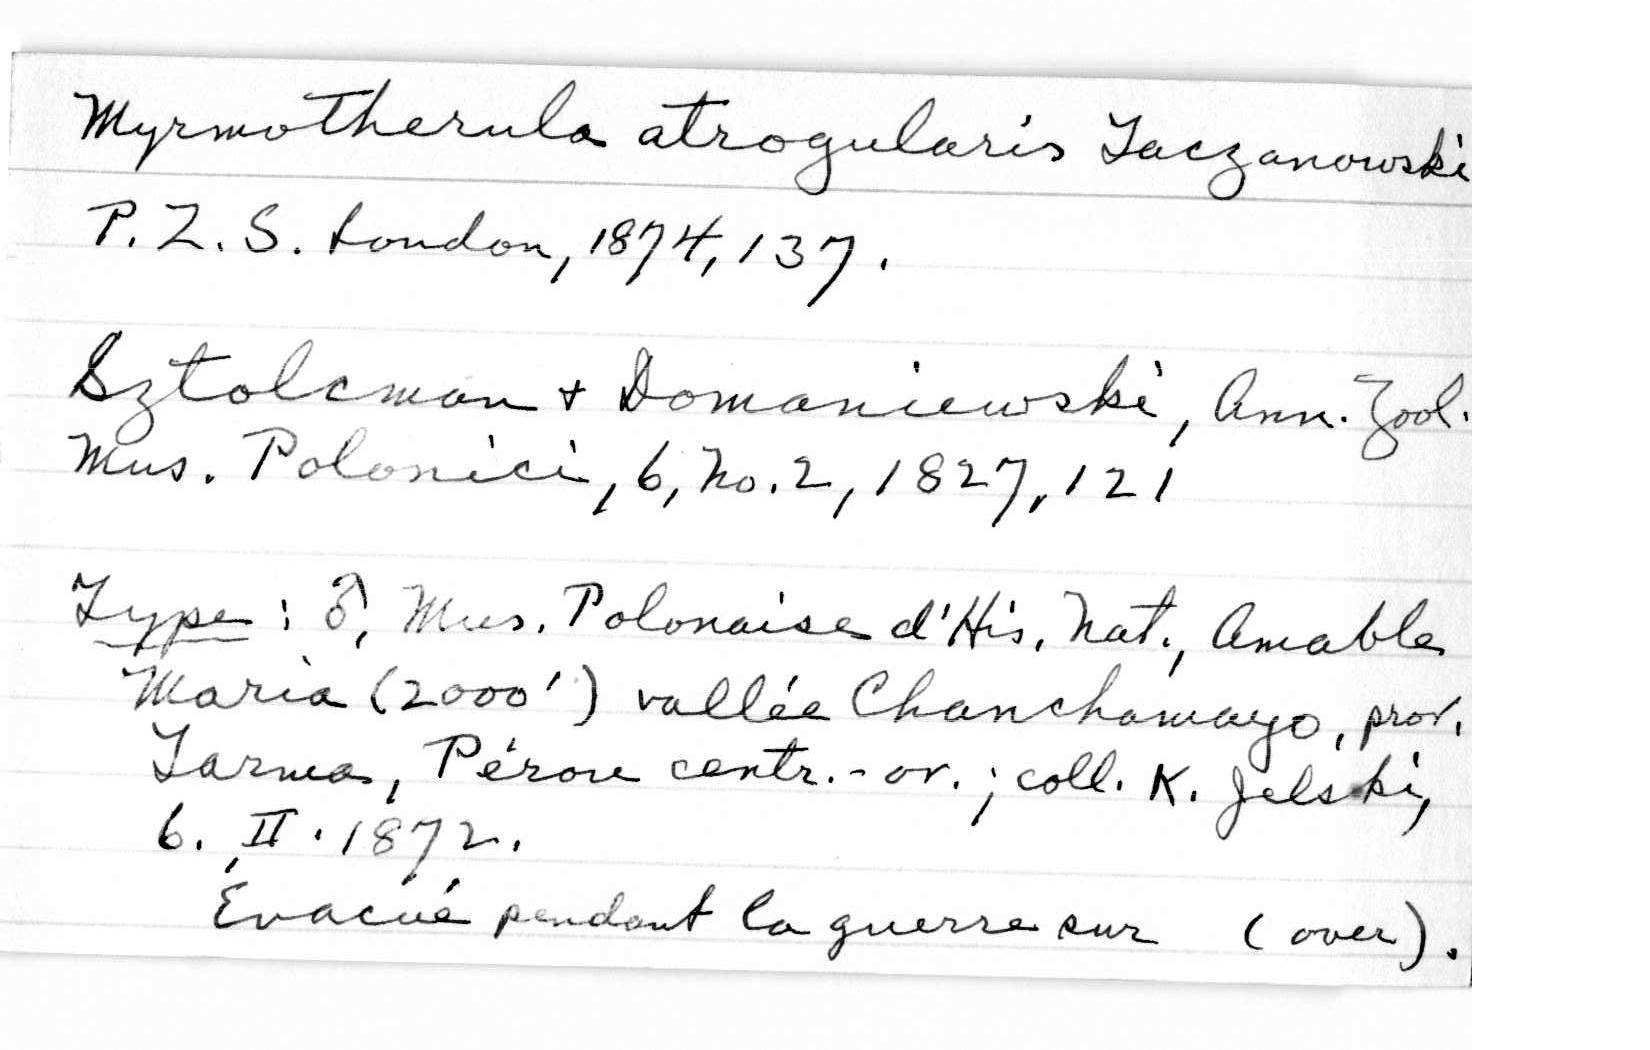 Myrmotherula atrogularis Taczanowski
P. Z. S. London, 1874, 137.
Sztolcman + Domaniewski, Ann. Zool.
Mus. Polonici, 6, No. 2, 1827, 121
Type: ♂, Mus. Polonaise d'His. Nat., Amable
Maria (2000') vallée Chanchamayo, prov.
Tarma, Pérou centr.-or.; coll. K. Jelski,
6. II. 1872.
Évacué pendant la guerre sur (over).